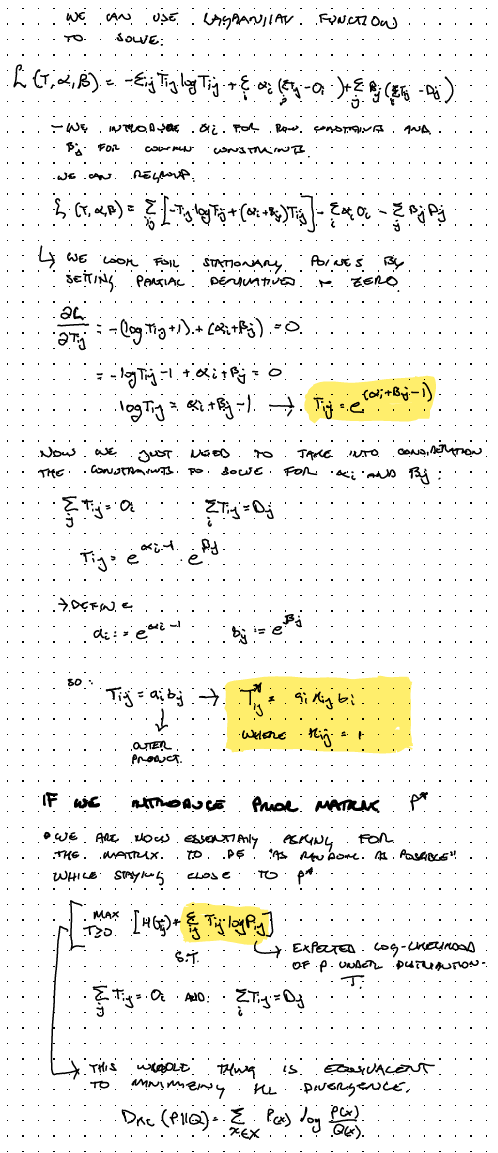 WE CAN USE LAGRANJIAN FUNCTION
TO SOLVE:
L (T, α, β) = -Σij Tij log Tij + Σi αi (Σj Tij - Oi) + Σj βj (Σi Tij - Dj)
- WE INTRODUCE αi FOR ROW CONSTRAINTS AND
βj FOR COLUMN CONSTRAINTS.
WE CAN REGROUP:
L (T, α, β) = Σij [-Tij log Tij + (αi + βj) Tij] - Σi αi Oi - Σj βj Dj
↳ WE LOOK FOR STATIONARY POINTS BY
SETTING PARTIAL DERIVATIVES TO ZERO
∂L/∂Tij = -(log Tij + 1) + (αi + βj) = 0
= -log Tij - 1 + αi + βj = 0
log Tij = αi + βj - 1 → Tij = e^(αi + βj - 1)
NOW WE JUST NEED TO TAKE INTO CONSIDERATION
THE CONSTRAINTS TO SOLVE FOR αi AND βj:
Σj Tij = Oi Σi Tij = Dj
Tij = e^(αi - 1) · e^βj
→ DEFINE
ai := e^(αi - 1) bj := e^βj
SO:
Tij = ai bj → T*ij = ai Kij bi
↓ WHERE Kij = 1
OUTER
PRODUCT.
IF WE INTRODUCE PRIOR MATRIX P*
• WE ARE NOW ESSENTIALLY ASKING FOR
THE MATRIX TO BE "AS RANDOM AS POSSIBLE"
WHILE STAYING CLOSE TO P*
MAX T≥0 [H(Tij) + Σij Tij log Pij]
S.T. ↳ EXPECTED LOG-LIKELIHOOD
OF P UNDER DISTRIBUTION
T.
Σj Tij = Oi AND: Σi Tij = Dj
→ THIS WHOLE THING IS EQUIVALENT
TO MINIMIZING KL DIVERGENCE,
DKL (P||Q) = Σx∈X P(x) log P(x)/Q(x)